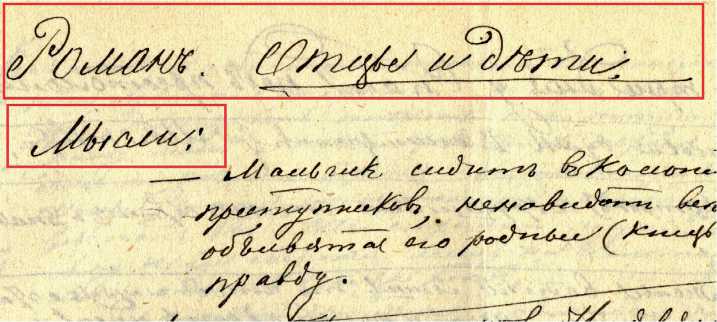 Романъ. Отцы и дѣти.
Мысли:
— Мальчик сидитъ въ колоні
преступниковъ, ненавидятъ
объявятся его родные (князь
правду.